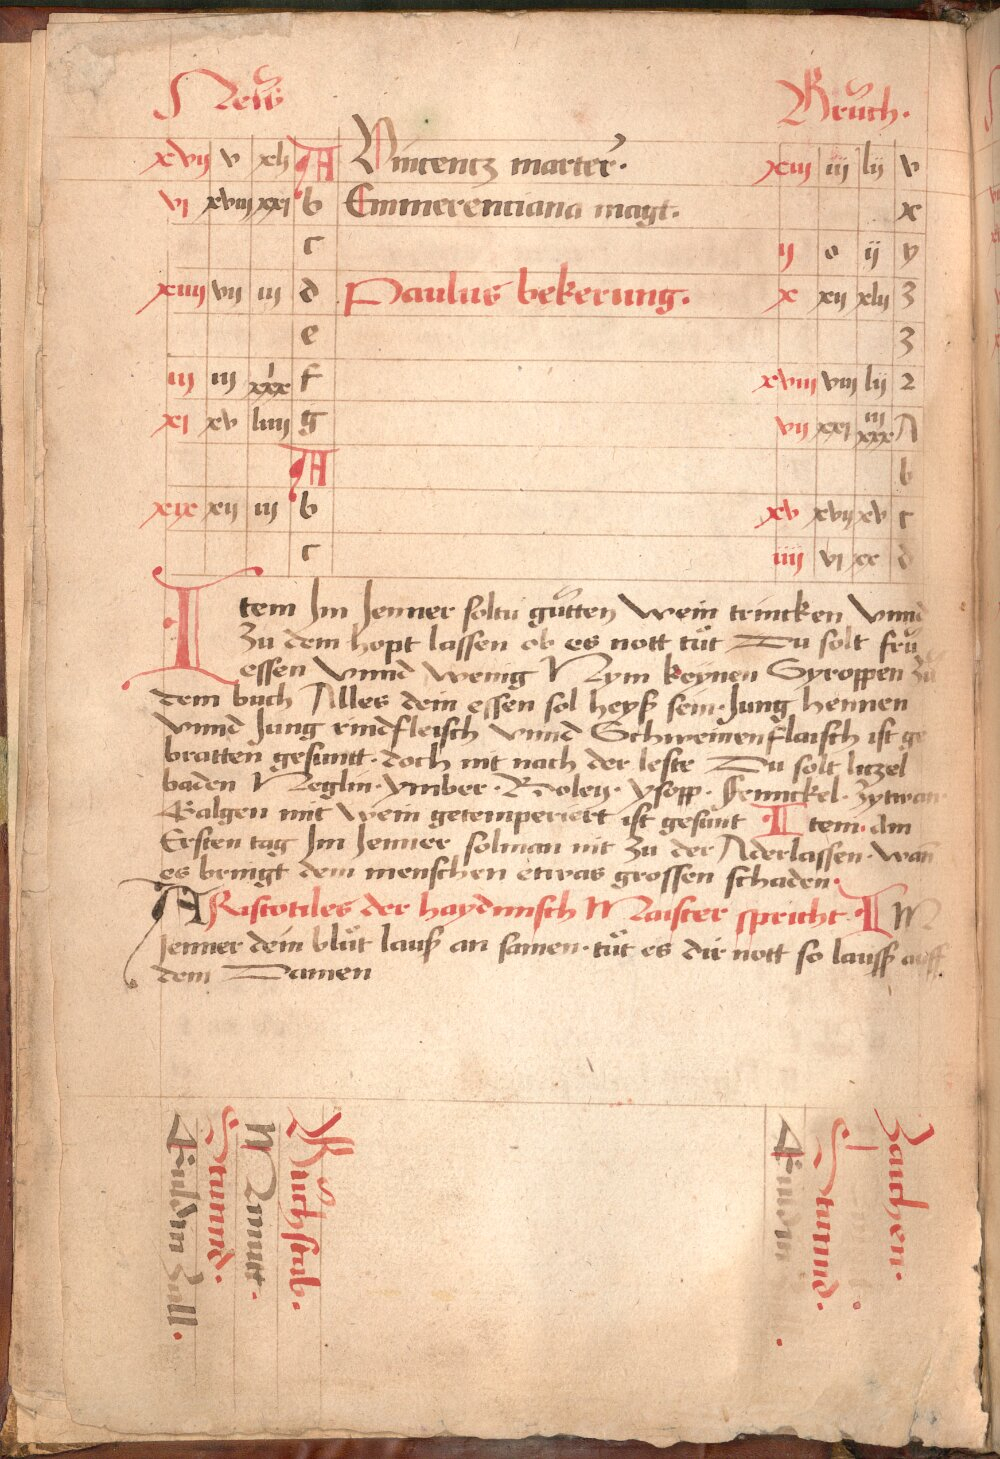 Neẅ Bruch.
xvij v xlj A Vincentz marter. xiij iij lij v
vi xviij xxi b Emmerenciana magt. x
c ij o ij y
xiiij vij iij d Paulus bekerung. x xij xlij z
e 3
iij iij xxx i f xviij viij lij 2
xi xv liiij g vij xxi xxx iij A
A b
xix xij iij b xv xvij xv c
c iiij vi xx d
Item Im Jenner soltu gůtten wein trincken vnnd
Zu dem hopt lassen ob es nott tůt Du solt frů
essen vnnd wenig Nym keynen Syroppen zů
dem buch Alles dein essen sol heyß sein. Jung hennen
vnnd Jung rindfleisch vnnd Schweinen flaisch ist ge
bratten gesuntt. doch nit nach der leste Du solt lützel
baden Neglin. ymber. Boley. ysopp. Fennckel. Zytwan
Galgen mit wein getemperiert ist gesunt Item. Am
Ersten tag Im Jenner sol man nit zu der Aderlassen. wañ
es bringt dem menschen etwas grossen schaden.
ARistotiles der haydnnisch Maister spricht. IM
Jenner dein blůt lauß an samen. tůt es dir nott so lauss auff
dem Damen
Guldin Zall.
Stunnd.
Minutt.
Bůchstab.
Guldin
Stunnd.
Zaichen.